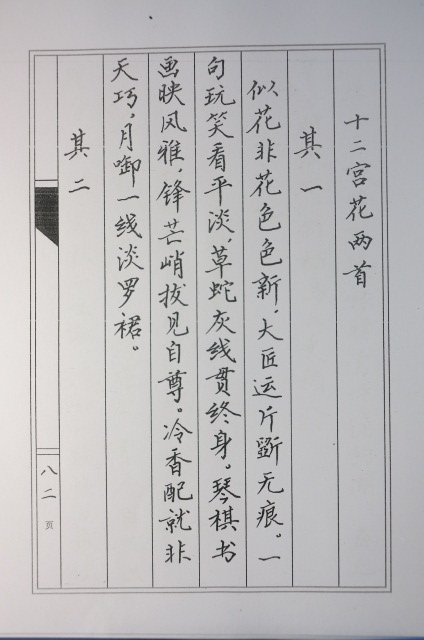 十二宫花两首
其一
似花非花色色新，大匠运斤斲无痕。一
句玩笑看平淡，草蛇灰线贯终身。琴棋书
画映风雅，锋芒峭拔见自尊。冷香配就非
天巧，月啣一线淡罗裙。
其二
八二
页